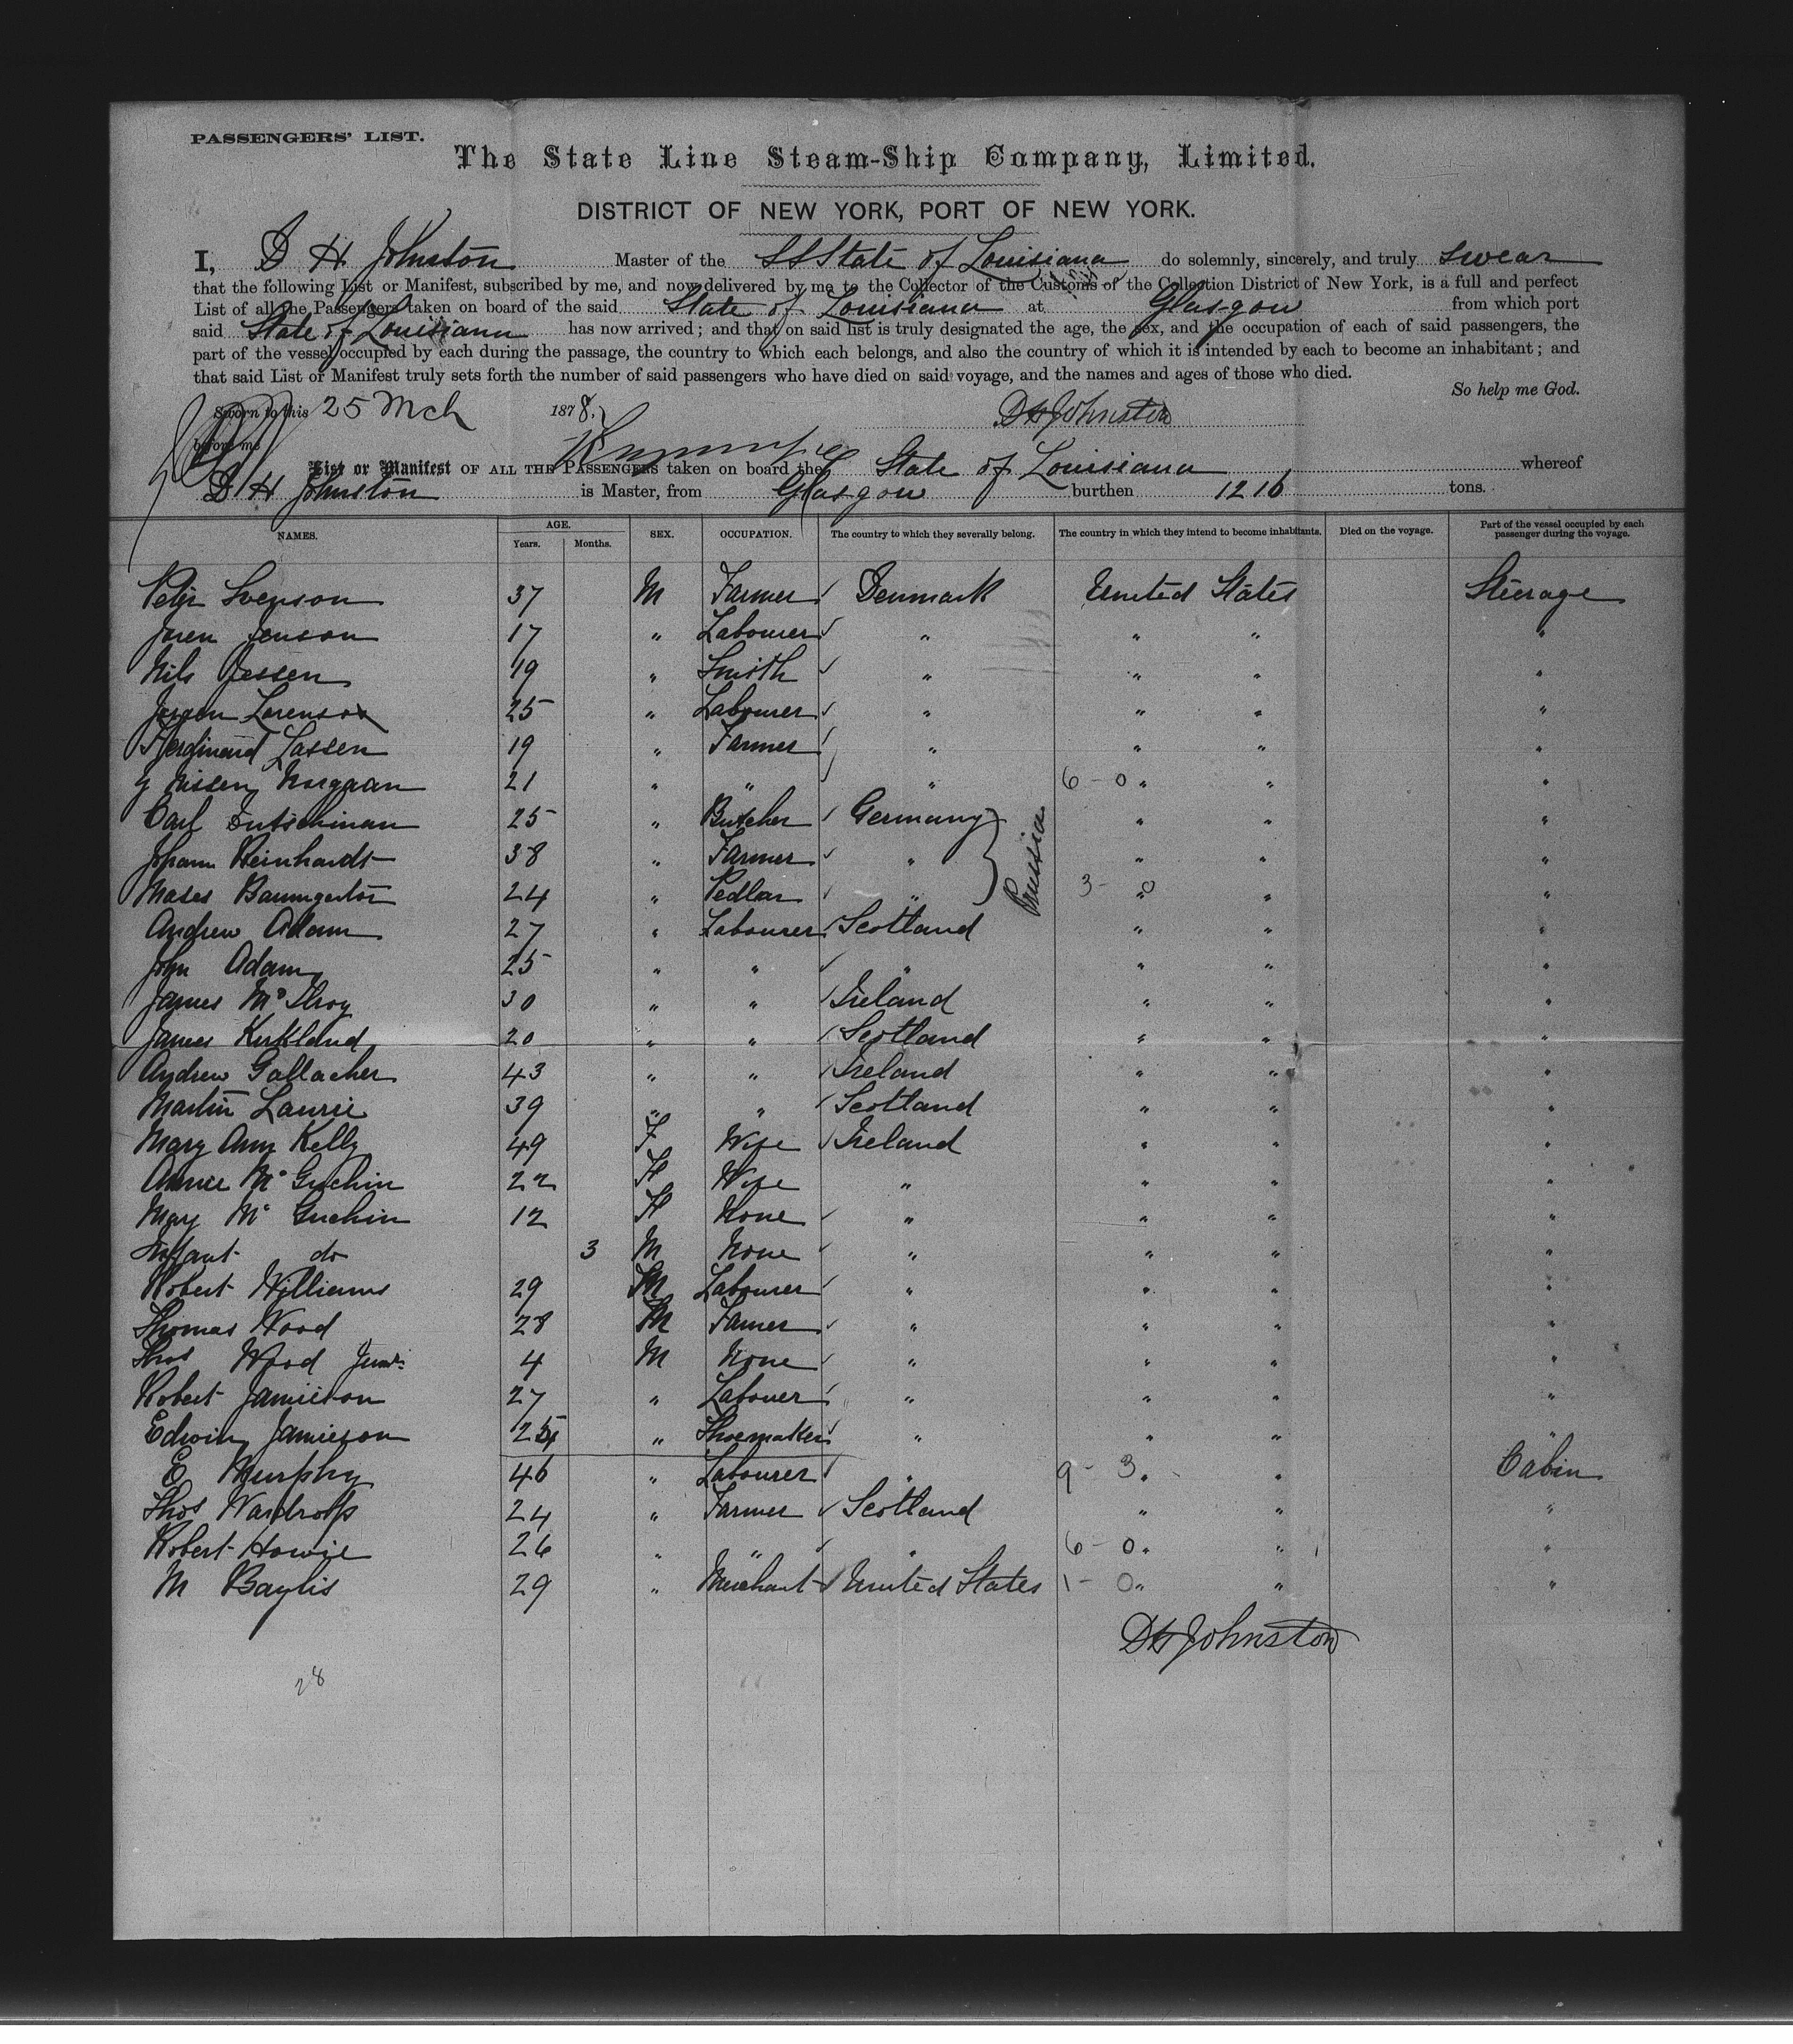 PASSENGERS' LIST.
The State Line Steam-Ship Company, Limited.
DISTRICT OF NEW YORK, PORT OF NEW YORK.
I, D H Johnston Master of the SS State of Louisiana do solemnly, sincerely, and truly swear
that the following List or Manifest, subscribed by me, and now delivered by me to the Collector of the Customs of the Collection District of New York, is a full and perfect
List of all the Passengers taken on board of the said State of Louisiana at Glasgow from which port
said State of Louisiana has now arrived; and that on said list is truly designated the age, the sex, and the occupation of each of said passengers, the
part of the vessel occupied by each during the passage, the country to which each belongs, and also the country of which it is intended by each to become an inhabitant; and
that said List or Manifest truly sets forth the number of said passengers who have died on said voyage, and the names and ages of those who died.
So help me God.
Sworn to this 25 Mch 1878. DH Johnston
before me
List or Manifest OF ALL THE PASSENGERS taken on board the State of Louisiana whereof
D H Johnston is Master, from Glasgow burthen 1216 tons.
NAMES. AGE. Years. Months. SEX. OCCUPATION. The country to which they severally belong. The country in which they intend to become inhabitants. Died on the voyage. Part of the vessel occupied by each passenger during the voyage.
Peter Svenson 37 M Farmer Denmark United States Steerage
Joren Jenson 17 " Labourer " " " "
Nils Jessen 19 " Smith " " " "
Jorgen Lorenson 25 " Labourer " " " "
Ferdinand Lassen 19 " Farmer " " " "
Nissen 21 " " " 6 - 0 " " "
Carl 25 " Butcher Germany " " "
Johann Reinhardt 38 " Farmer " Prussia " " "
Moses Baumgarten 24 " Pedlar " 3 - 0 " " "
Andrew Adam 27 " Labourer Scotland " " "
John Adam 25 " " " " " "
James McIlroy 30 " " Ireland " " "
James Kirkland 20 " " Scotland " " "
Andrew Gallacher 43 " " Ireland " " "
Martin Laurie 39 " " Scotland " " "
Mary Ann Kelly 49 F Wife Ireland " " "
Annie Mc Guchin 22 F Wife " " " "
Mary Mc Guchin 12 F None " " " "
Infant do 3 M None " " " "
Robert Williams 29 M Labourer " " " "
Thomas Wood 28 M Farmer " " " "
Thos Wood Junr 4 M None " " " "
Robert Jamieson 27 " Labouer " " " "
Edwin Jamieson 24 " Shoemaker " " " "
E Murphy 46 " Labourer " 9 - 3 " " Cabin
Thos Wardrop 24 " Farmer Scotland " " "
Robert Howie 26 " " " 6 - 0 " " "
M Baylis 29 " Merchant United States 1 - 0 " " "
DH Johnston
28